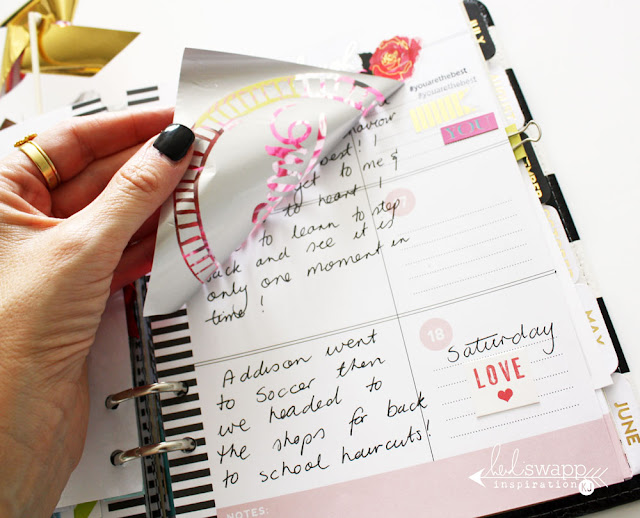 #youarethebest
#youarethebest
YOU
best! I
get to me &
to heart I
to learn to step
back and see it is
only one moment in
time!
Addison went
to soccer then
we headed to
the shops for back
to school haircuts!
18
Saturday
LOVE
NOTES:
MAY
JUNE
heidi swapp
inspiration